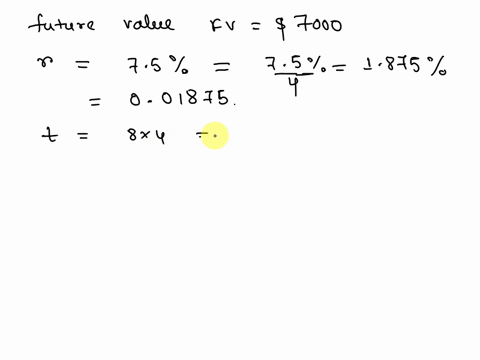 future value FV = $ 7000
r = 7.5% = 7.5%/4 = 1.875%
= 0.01875.
t = 8×4 =